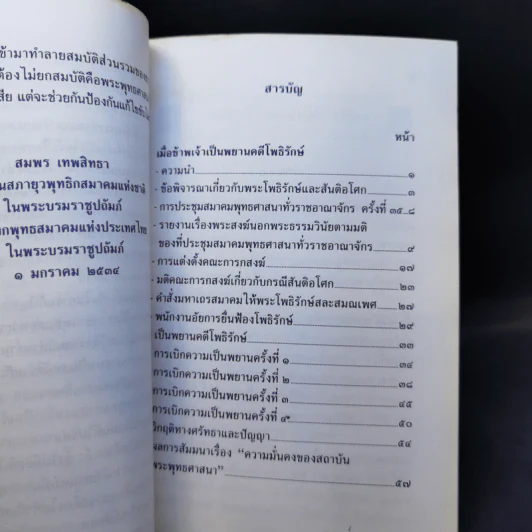 ข้ามาทำลายสมบัติส่วนรวมของ
ต้องไม่ยกสมบัติคือพระพุทธศาสน
สีย แต่จะช่วยกันป้องกันแก้ไข
สมพร เทพสิทธา
นสภายุวพุทธิกสมาคมแห่งชาติ
ในพระบรมราชูปถัมภ์
กพุทธสมาคมแห่งประเทศไทย
ในพระบรมราชูปถัมภ์
๑ มกราคม ๒๕๓๔
สารบัญ
หน้า
เมื่อข้าพเจ้าเป็นพยานคดีโพธิรักษ์
- ความนำ ๑
- ข้อพิจารณาเกี่ยวกับพระโพธิรักษ์และสันติอโศก ๓
- การประชุมสมาคมพุทธศาสนาทั่วราชอาณาจักร ครั้งที่ ๓๕ ๘
- รายงานเรื่องพระสงฆ์นอกพระธรรมวินัยตามมติ
ของที่ประชุมสมาคมพุทธศาสนาทั่วราชอาณาจักร ๙
- การแต่งตั้งคณะการกสงฆ์ ๑๗
- มติคณะการกสงฆ์เกี่ยวกับกรณีสันติอโศก ๒๓
- คำสั่งมหาเถรสมาคมให้พระโพธิรักษ์สละสมณเพศ ๒๗
- พนักงานอัยการยื่นฟ้องโพธิรักษ์ ๒๙
เป็นพยานคดีโพธิรักษ์ ๓๓
การเบิกความเป็นพยานครั้งที่ ๑ ๓๔
การเบิกความเป็นพยานครั้งที่ ๒ ๓๘
การเบิกความเป็นพยานครั้งที่ ๓ ๔๕
การเบิกความเป็นพยานครั้งที่ ๔ ๕๐
วิกฤติทางศรัทธาและปัญญา ๕๔
ผลการสัมมนาเรื่อง "ความมั่นคงของสถาบัน
พระพุทธศาสนา" ๕๗